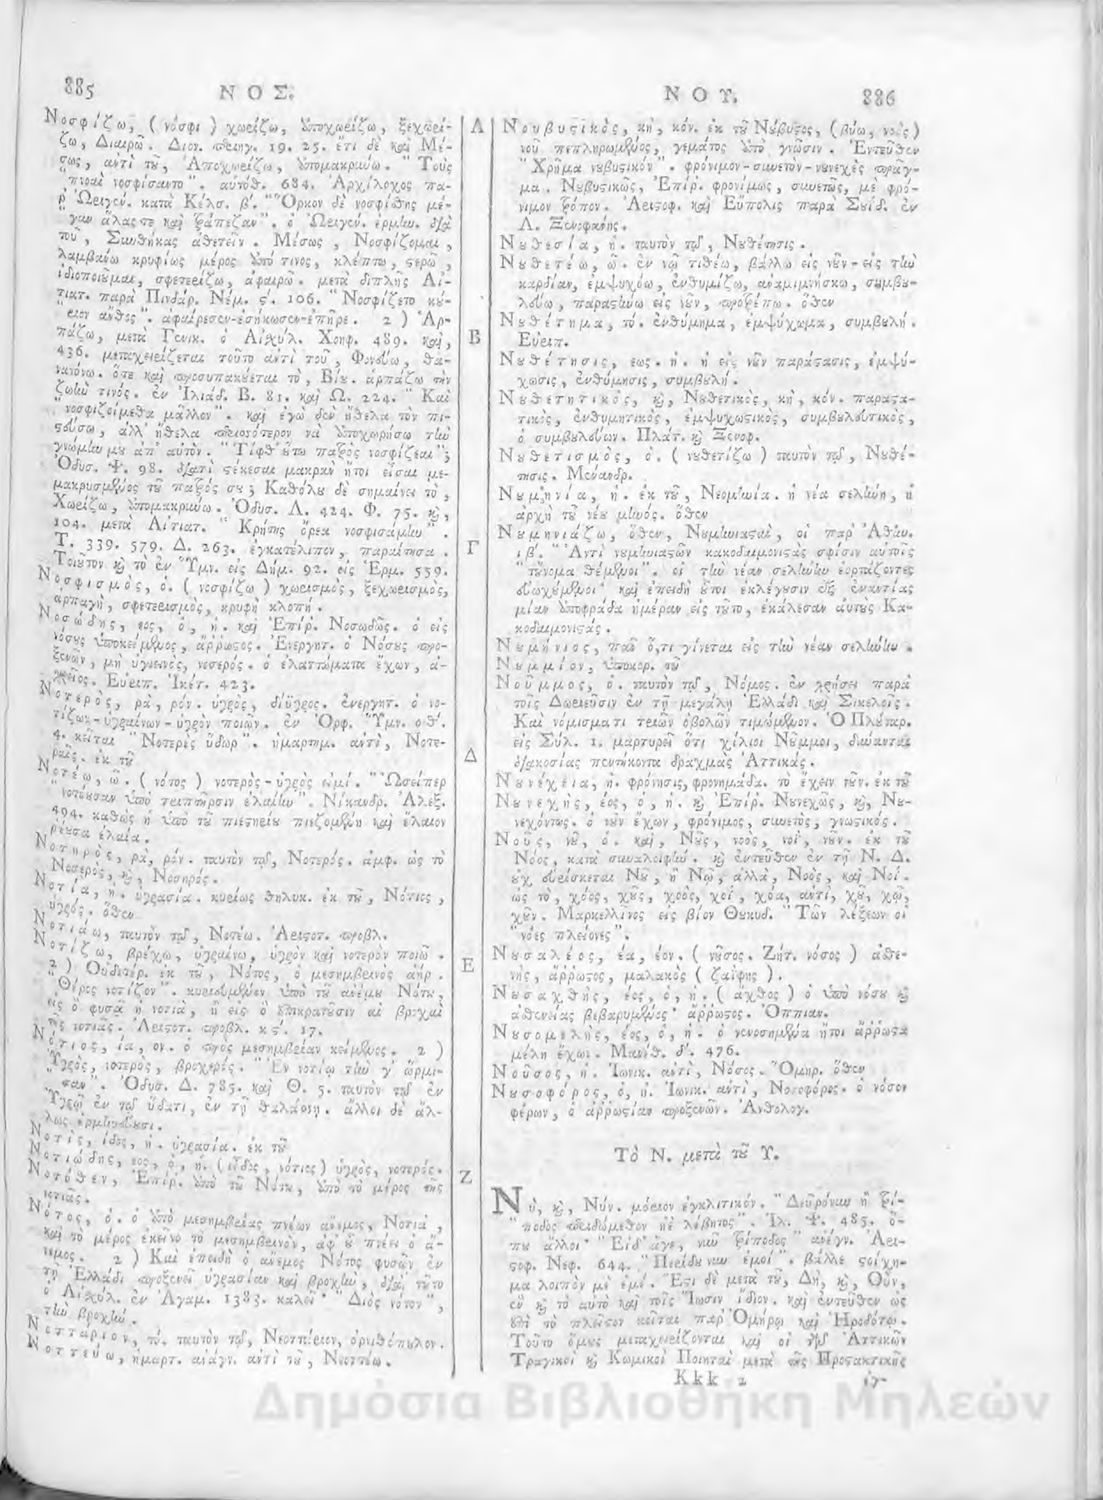 885 ΝΟΣ.
Νοσφίζω, (νόσφι) χωρίζω, ὑποχωρίζω, ξεχωρί-
ζω, Διαιρῶ. Διον. περιηγ. 19. 25. ἔτι δὲ καὶ Μέ-
σως, ἀντὶ τοῦ, Ἀποχωρίζω, ὑπομακρύνω. "Τοὺς
νοσφίσαντο". αὐτόθ. 684. Ἀρχίλοχος πα-
ρ' Ὠριγέν. κατὰ Κέλσ. β'. "Ὅρκον δὲ νοσφίσθης μέ-
γαν ἅλας τε καὶ τράπεζαν". ὁ Ὠριγέν. ἑρμην. διὰ
τοῦ, Συνθήκας ἀθετεῖν. Μέσως, Νοσφίζομαι,
λαμβάνω κρυφίως μέρος ἀπό τινος, κλέπτω, στερῶ,
ἰδιοποιοῦμαι, σφετερίζω, ἀφαιρῶ. μετὰ διπλῆς Αἰ-
τιατ. παρὰ Πινδάρ. Νέμ. ς'. 106. "Νοσφίζετο
ἄνθος". ἀφαίρεσεν-ἐσήκωσεν-ἐπῆρε. 2) Ἁρ-
πάζω, μετὰ Γενικ. ὁ Αἰσχύλ. Χοηφ. 489. καὶ,
436. μεταχειρίζεται τοῦτο ἀντὶ τοῦ, Φονεύω, θα-
νατόνω. ὅτε καὶ προσυπακούεται τὸ, Βίου. ἁρπάζω τὴν
ζωὴν τινός. ἐν Ἰλιάδ. Β. 81. καὶ Ω. 224. "Καὶ
νοσφιζοίμεθα μᾶλλον". καὶ ἐγὼ δὲν ἤθελα τὸν πι-
στεύσω, ἀλλ' ἤθελα περισσότερον νὰ ὑποχωρήσω τὴν
γνώμην μου ἀπ' αὐτόν. "Τίφθ' οὕτω πατρὸς νοσφίζεαι";
Ὀδυσ. Ψ. 98. διατί στέκεσαι μακρὰν ἤτοι εἶσαι με-
μακρυσμένος τοῦ πατρός σου; Καθόλου δὲ σημαίνει τὸ,
Χωρίζω, ὑπομακρύνω. Ὀδυσ. Λ. 424. Φ. 75. καὶ,
104. μετὰ Αἰτιατ. "Κρήτης ὄρεα νοσφισάμην".
Τ. 339. 579. Δ. 263. ἐγκατέλιπον, παραίτησα.
Τοιοῦτον καὶ τὸ ἐν Ὕμν. εἰς Δήμ. 92. εἰς Ἑρμ. 559.
Νοσφισμὸς, ὁ. (νοσφίζω) χωρισμὸς, ξεχωρισμὸς,
ἁρπαγὴ, σφετερισμὸς, κρυφὴ κλοπή.
Νοσώδης, εος, ὁ, ἡ. καὶ Ἐπίρ. Νοσωδῶς. ὁ εἰς
νόσους ὑποκείμενος, ἄρρωστος. Ἐνεργητ. ὁ Νόσους προ-
ξενῶν, μὴ ὑγιεινὸς, νοσερός. ὁ ἐλαττώματα ἔχων, ἀ-
χρεῖος. Εὐριπ. Ἱκέτ. 423.
Νοτερὸς, ρὰ, ρόν. ὑγρὸς, δίυγρος. ἐνεργητ. ὁ νο-
τίζων-ὑγραίνων-ὑγρὸν ποιῶν. ἐν Ὀρφ. Ὕμν. οθ'.
4. κεῖται "Νοτερὶς ὕδωρ". ἡμαρτημ. ἀντὶ, Νοτε-
ρόν. ἐκ τοῦ
Νοτέω, ῶ. (νότος) νοτερὸς-ὑγρὸς εἰμί. "Ὡσείπερ
νοτέουσαν ὑπὸ τριπτῆρσιν ἐλαίην". Νίκανδρ. Ἀλεξ.
494. καθὼς ἡ ὑπὸ τοῦ πιεστηρίου πιεζομένη καὶ ἔλαιον
ῥέουσα ἐλαία.
Νοτηρὸς, ρὰ, ρόν. ταυτὸν τῷ, Νοτερός. ἀμφ. ὡς τὸ
Νοσερὸς, καὶ, Νοσηρός.
Νοτία, ἡ. ὑγρασία. κυρίως θηλυκ. ἐκ τοῦ, Νότιος,
ὑγρός. ὅθεν
Νοτιάω, ταυτὸν τῷ, Νοτέω. Ἀριστοτ. προβλ.
Νοτίζω, βρέχω, ὑγραίνω, ὑγρὸν καὶ νοτερὸν ποιῶ.
2) Οὐδετέρ. ἐκ τοῦ, Νότος, ὁ μεσημβρινὸς ἀήρ.
"Θέρος νοτίζον". κυριευόμενον ὑπὸ τοῦ ἀνέμου Νότου,
εἰς ὃ φυσᾷ ἡ νοτιὰ, ἢ εἰς ὃ ἐπικρατοῦσιν αἱ βροχαὶ
τῆς νοτιᾶς. Ἀριστοτ. προβλ. κς'. 17.
Νότιος, ία, ον. ὁ πρὸς μεσημβρίαν κείμενος. 2)
Ὑγρὸς, νοτερὸς, βροχερός. "Ἐν νοτίῳ τὴν γ' ὥρμι-
σαν". Ὀδυσ. Δ. 785. καὶ Θ. 5. ταυτὸν τῷ ἐν
Ὑγρῷ ἐν τῷ ὕδατι, ἐν τῇ θαλάσσῃ. ἄλλοι δὲ ἀλ-
λως ἑρμηνεύουσι.
Νοτὶς, ίδος, ἡ. ὑγρασία. ἐκ τοῦ
Νοτιώδης, εος, ὁ, ἡ. (εἶδος, νότιος) ὑγρὸς, νοτερός.
Νοτόθεν, Ἐπίρ. ἀπὸ τοῦ Νότου, ἀπὸ τὸ μέρος τῆς
νοτιᾶς.
Νότος, ὁ. ὁ ἀπὸ μεσημβρίας πνέων ἄνεμος, Νοτιά,
καὶ τὸ μέρος ἐκεῖνο τὸ μεσημβρινὸν, ἀφ' οὗ πνέει ὁ ἄ-
νεμος. 2) Καὶ ἐπειδὴ ὁ ἄνεμος Νότος φυσῶν ἐν
τῇ Ἑλλάδι προξενεῖ ὑγρασίαν καὶ βροχὴν, διὰ τοῦτο
ὁ Αἰσχύλ. ἐν Ἀγαμ. 1383. καλεῖ· "Διὸς νότον",
τὴν βροχήν.
Νοττάριον, τό. ταυτὸν τῷ, Νεοττίειον, ὀρνιθόπουλον.
Νοττεύω, ἡμαρτ. ἀνάγν. ἀντὶ τοῦ, Νεοττεύω.
Α
Β
Γ
Δ
Ε
Ζ
ΝΟΥ. 886
Νουβυστικὸς, κὴ, κόν. ἐκ τοῦ Νούβυστος, (βύω, νοῦς)
νοῦ πεπληρωμένος, γεμάτος ἀπὸ γνῶσιν. Ἐντεῦθεν
"Χρῆμα νουβυστικόν". φρόνιμον-συνετὸν-νουνεχὲς πρᾶγ-
μα. Νουβυστικῶς, Ἐπίρ. φρονίμως, συνετῶς, μὲ φρό-
νιμον τρόπον. Ἀριστοφ. καὶ Εὔπολις παρὰ Σουίδ. ἐν
Λ. Ξενοφάνης.
Νουθεσία, ἡ. ταυτὸν τῷ, Νουθέτησις.
Νουθετέω, ῶ. ἐν νῷ τιθέω, βάλλω εἰς νοῦν-εἰς τὴν
καρδίαν, ἐμψυχόω, ἐνθυμίζω, ἀναμιμνήσκω, συμβου-
λεύω, παραστένω εἰς νοῦν, προτρέπω. ὅθεν
Νουθέτημα, τό. ἐνθύμημα, ἐμψύχωμα, συμβουλή.
Εὐριπ.
Νουθέτησις, εως. ἡ. ἡ εἰς νοῦν παράστασις, ἐμψύ-
χωσις, ἐνθύμησις, συμβουλή.
Νουθετητικὸς, καὶ, Νουθετικὸς, κὴ, κόν. παραστα-
τικὸς, ἐνθυμητικὸς, ἐμψυχωτικὸς, συμβουλευτικὸς,
ὁ συμβουλεύων. Πλάτ. καὶ Ξενοφ.
Νουθετισμὸς, ὁ. (νουθετίζω) ταυτὸν τῷ, Νουθέ-
τησις. Μένανδρ.
Νουμηνία, ἡ. ἐκ τοῦ, Νεομηνία. ἡ νέα σελήνη, ἡ
ἀρχὴ τοῦ νέου μηνός. ὅθεν
Νουμηνιάζω, ὅθεν, Νουμηνιασταὶ, οἱ παρ' Ἀθήν.
ιβ'. "Ἀντὶ νουμηνιαστῶν κακοδαιμονιστὰς σφίσιν αὐτοῖς
"τοὔνομα θέμενοι". οἱ τὴν νέαν σελήνην ἑορτάζοντες
εὐωχούμενοι· καὶ ἐπειδὴ οὗτοι ἐκλέγουσιν ἐξ ἐναντίας
μίαν ἀποφράδα ἡμέραν εἰς τοῦτο, ἐκάλεσαν αὐτοὺς Κα-
κοδαιμονιστάς.
Νουμήνιος, πᾶν ὅ,τι γίνεται εἰς τὴν νέαν σελήνην.
Νουμμίον, ὑποκορ. τοῦ
Νοῦμμος, ὁ. ταυτὸν τῷ, Νόμος. ἐν χρήσει παρὰ
τοῖς Δωριεῦσιν ἐν τῇ μεγάλῃ Ἑλλάδι καὶ Σικελοῖς.
Καὶ νόμισμά τι τριῶν ὀβολῶν τιμώμενον. Ὁ Πλούταρ.
εἰς Σύλ. 1. μαρτυρεῖ ὅτι χίλιοι Νοῦμμοι, δύνανται
διακοσίας πεντήκοντα δραχμὰς Ἀττικάς.
Νουνέχεια, ἡ. φρόνησις, φρονημάδα. τὸ ἔχειν νοῦν. ἐκ τοῦ
Νουνεχὴς, έος, ὁ, ἡ. καὶ Ἐπίρ. Νουνεχῶς, καὶ, Νου-
νεχόντως. ὁ νοῦν ἔχων, φρόνιμος, συνετὸς, γνωστικός.
Νοῦς, νοῦ, ὁ. καὶ, Νοῦς, νοὸς, νοῒ, νοῦν. ἐκ τοῦ
Νόος, κατὰ συναλοιφήν. καὶ ἐντεῦθεν ἐν τῇ Ν. Δ.
οὐχ εὑρίσκεται Νοῦ, ἢ Νῷ, ἀλλὰ, Νοὸς, καὶ Νοΐ.
ὡς τὸ, χόος, χοῦς, χοὸς, χοῒ, χόα, ἀντὶ, χοῦ, χῷ,
χοῦν. Μαρκελλῖνος εἰς βίον Θουκυδ. "Τῶν λέξεων οἱ
"νόες πλείονες".
Νουσαλέος, έα, έον. (νοῦσος. Ζήτ. νόσος) ἀσθε-
νὴς, ἄρρωστος, μαλακὸς (ζαΐφης).
Νουσαχθὴς, έος, ὁ, ἡ. (ἄχθος) ὁ ὑπὸ νόσου καὶ
ἀσθενείας βεβαρυμένος· ἄρρωστος. Ὀππιαν.
Νουσομελὴς, έος, ὁ, ἡ. ὁ νενοσημένα ἤτοι ἄρρωστα
μέλη ἔχων. Μανέθ. δ'. 476.
Νοῦσος, ἡ. Ἰωνικ. ἀντὶ, Νόσος. Ὅμηρ. ὅθεν
Νουσοφόρος, ὁ, ἡ. Ἰωνικ. ἀντὶ, Νοσοφόρος. ὁ νόσον
φέρων, ὁ ἀρρωστίαν προξενῶν. Ἀνθολογ.
Τὸ Ν. μετὰ τοῦ Υ.
Νὺ, καὶ, Νύν. μόριον ἐγκλιτικόν. "Δεῦρό νυν ἢ τρί-
"ποδος περιδώμεθον ἠὲ λέβητος". Ἰλ. Ψ. 485. ὅ-
που ἄλλοι· "Εἰδ' ἄγε, νῦν τρίποδος" ἀνέγν. Ἀρι-
στοφ. Νεφ. 644. "Περίδου νυν ἐμοί". βάλλε στοίχη-
μα λοιπὸν μὲ ἐμέ. Ἔτι δὲ μετὰ τοῦ, Δὴ, καὶ, Οὖν,
ἓν καὶ τὸ αὐτὸ καὶ τοῖς Ἴωσιν ἴδιον. καὶ ἐντεῦθεν ὡς
ἐπὶ τὸ πλεῖστον κεῖται παρ' Ὁμήρῳ καὶ Ἡροδότῳ.
Τοῦτο ὅμως μεταχειρίζονται καὶ οἱ τῶν Ἀττικῶν
Τραγικοὶ καὶ Κωμικοὶ Ποιηταὶ μετὰ τῆς Προστακτικῆς
Kkk 2 ἐγ-
Δημόσια Βιβλιοθήκη Μηλεών